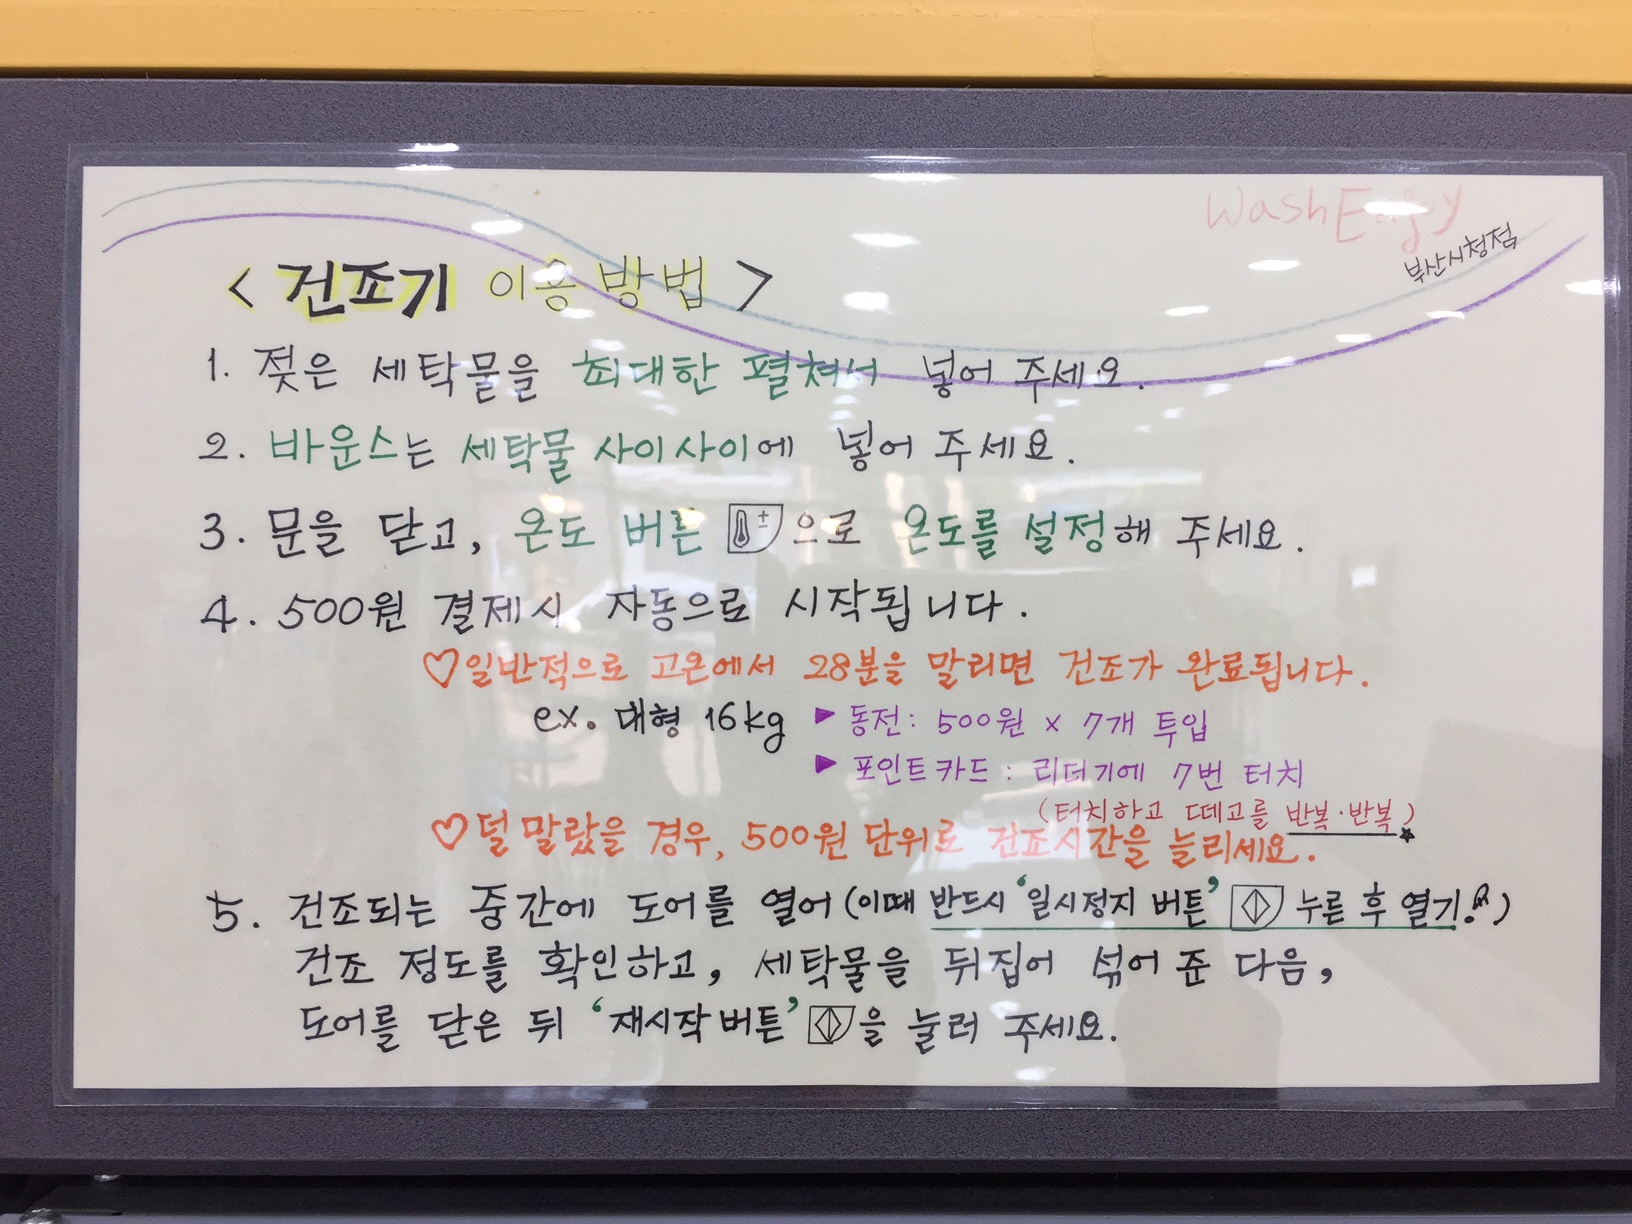 WashEnjoy
부산시청점
< 건조기 이용 방법 >
1. 젖은 세탁물을 최대한 펼쳐서 넣어 주세요.
2. 바운스는 세탁물 사이사이에 넣어 주세요.
3. 문을 닫고, 온도 버튼 으로 온도를 설정해 주세요.
4. 500원 결제시 자동으로 시작됩니다.
♡일반적으로 고온에서 28분을 말리면 건조가 완료됩니다.
ex. 대형 16kg ▶ 동전: 500원 x 7개 투입
▶ 포인트카드 : 리더기에 7번 터치
(터치하고 떼고를 반복·반복)
♡덜 말랐을 경우, 500원 단위로 건조시간을 늘리세요.
5. 건조되는 중간에 도어를 열어 (이때 반드시 '일시정지 버튼' 누른 후 열기!)
건조 정도를 확인하고, 세탁물을 뒤집어 섞어 준 다음,
도어를 닫은 뒤 '재시작 버튼' 을 눌러 주세요.